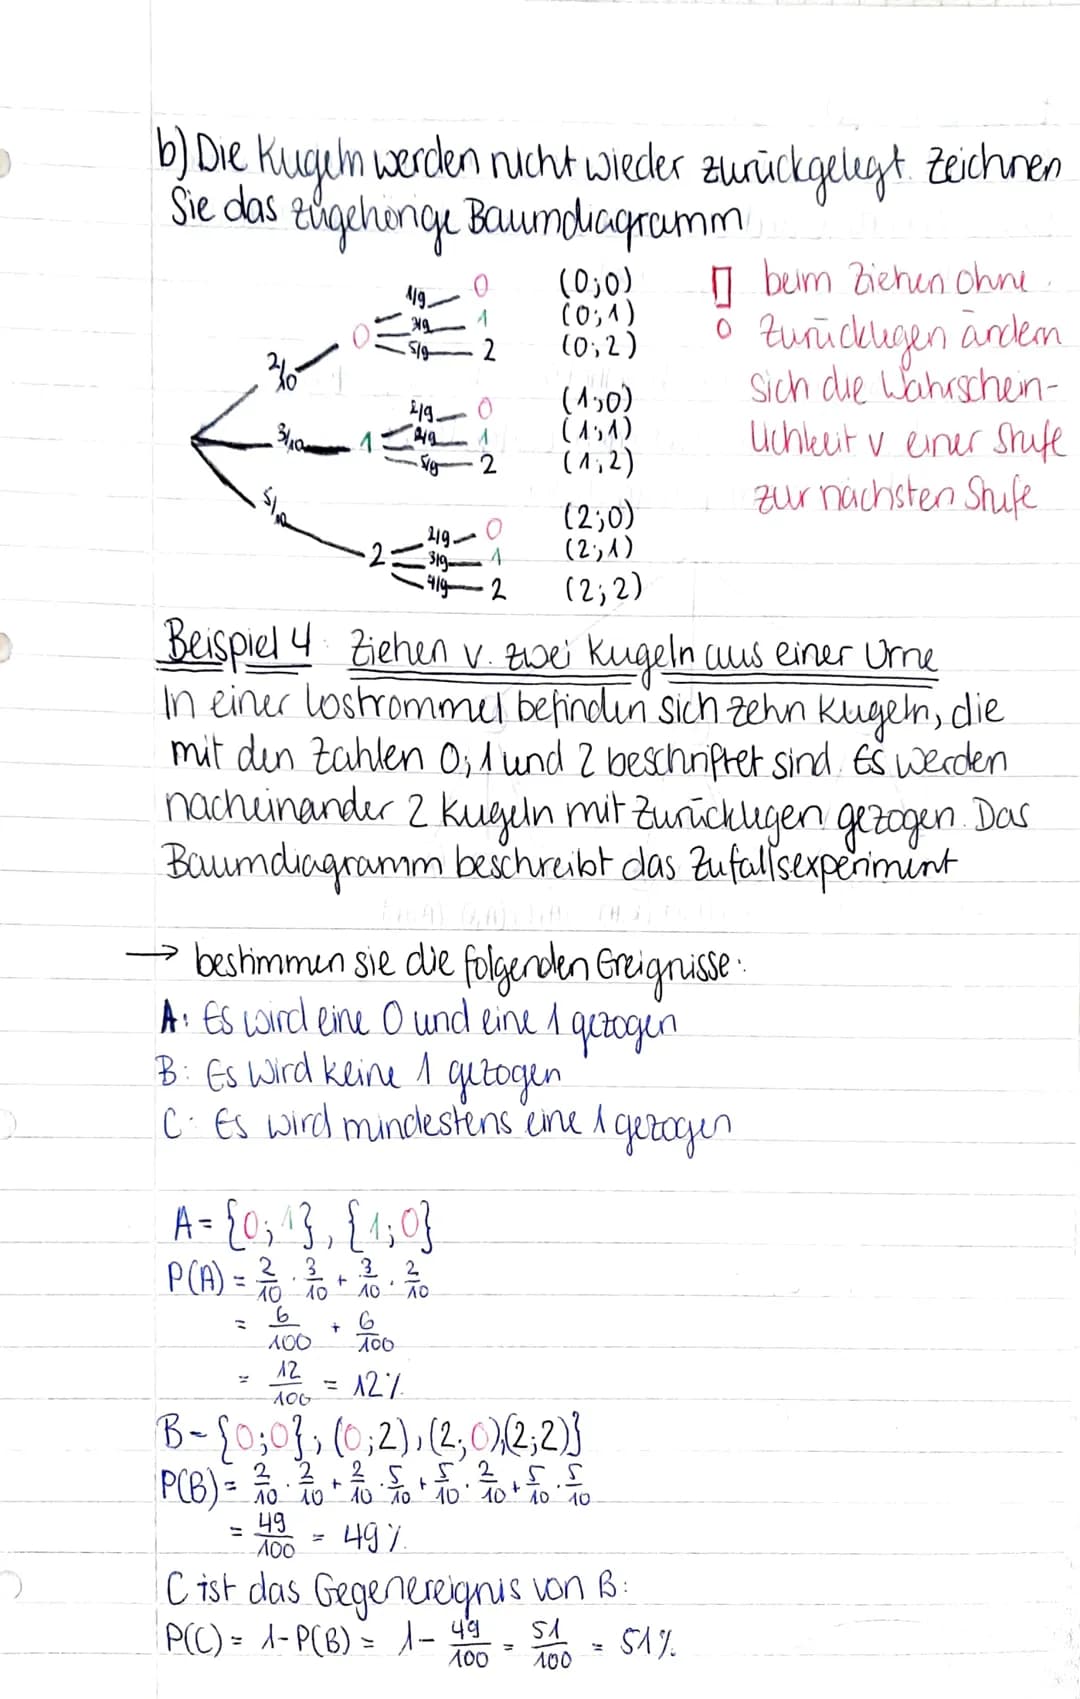 b) Die Kugeln werden nicht wieder zurückgelegt. Zeichnen
Sie das zugehörige Baumdiagramm
2/10 0 1/9 0 (0;0)
3/9 1 (0;1)
5/9 2 (0;2)
3/10 1 2/9 0 (1;0)
2/9 1 (1;1)
5/9 2 (1;2)
5/10 2 2/9 0 (2;0)
3/9 1 (2;1)
4/9 2 (2;2)
beim Ziehen ohne
Zurücklegen ändern
sich die Wahrschein-
lichkeit v einer Stufe
zur nächsten Stufe
Beispiel 4: Ziehen v. zwei Kugeln aus einer Urne
In einer Lostrommel befinden sich zehn Kugeln, die
mit den Zahlen 0; 1 und 2 beschriftet sind. Es werden
nacheinander 2 Kugeln mit Zurücklegen gezogen. Das
Baumdiagramm beschreibt das Zufallsexperiment
→ bestimmen sie die folgenden Ereignisse:
A: Es wird eine 0 und eine 1 gezogen
B: Es wird keine 1 gezogen
C: Es wird mindestens eine 1 gezogen
A = {0;1}, {1;0}
P(A) = 2/10 · 3/10 + 3/10 · 2/10
= 6/100 + 6/100
= 12/100 = 12%
B = {0;0}, (0;2), (2;0), (2;2)}
P(B) = 2/10 · 2/10 + 2/10 · 5/10 + 5/10 · 2/10 + 5/10 · 5/10
= 49/100 = 49%
C ist das Gegenereignis von B:
P(C) = 1-P(B) = 1 - 49/100 = 51/100 = 51%